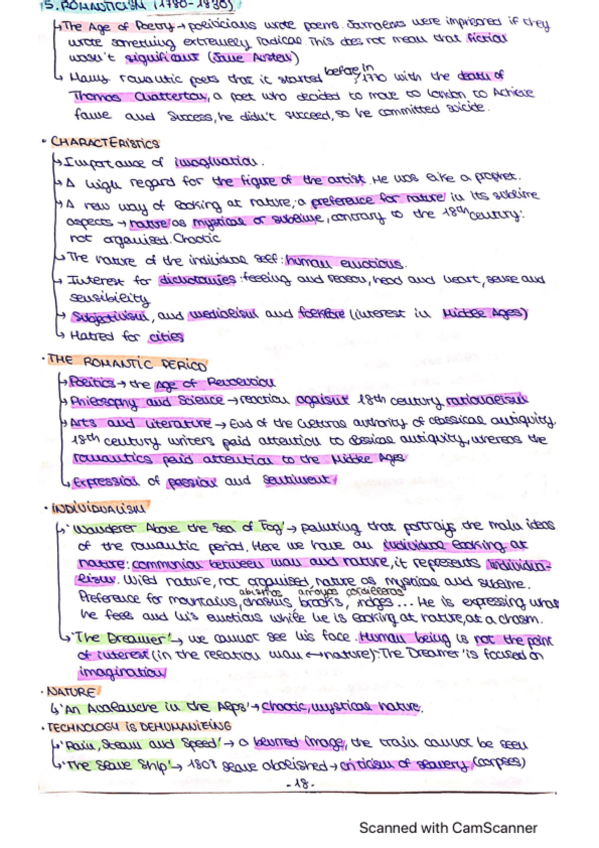 5. ROMANTICISM (1780-1830)
↳ The Age of Poetry → politicians wrote poems. Journalists were imprisoned if they
wrote something extremely radical. This does not mean that fiction
wasn't significant (Jane Austen)
↳ Many romantic poets that it started before, in 1770 with the death of
Thomas Chatterton, a poet who decided to move to London to Achieve
fame and success, he didn't succeed, so he committed suicide.
· CHARACTERISTICS
↳ Importance of imagination.
↳ A high regard for the figure of the artist. He was like a prophet.
↳ A new way of looking at nature; a preference for nature in its sublime
aspects → nature as mystical or sublime, contrary to the 18th century:
not organised. Chaotic
↳ The nature of the individual self: human emotions.
↳ Interest for dichotomies: feeling and reason, head and heart, sense and
sensibility
↳ Subjectivism, and medievalism and folklore (interest in Middle Ages)
↳ Hatred for cities
· THE ROMANTIC PERIOD
↳ Politics → the Age of Revolution
↳ Philosophy and Science → reaction against 18th century rationalism
↳ Arts and Literature → End of the cultural authority of classical antiquity.
18th century writers paid attention to classical antiquity, whereas the
romantics paid attention to the Middle Ages
↳ Expression of passion and sentiment
· INDIVIDUALISM
↳ 'Wanderer Above the Sea of Fog' → painting that portrays the main ideas
of the romantic period. Here we have an individual looking at
nature: communion between man and nature, it represents individua-
lism. Wild nature, not organised, nature as mystical and sublime.
abismos arroyos cordilleras
Preference for mountains, chasms, brooks, ridges... He is expressing what
he feels and his emotions while he is looking at nature, at a chasm.
↳ 'The Dreamer' → we cannot see his face. Human being is not the point
of interest (in the relation man ↔ nature): 'The Dreamer' is focused on
imagination
· NATURE
↳ 'An Avalanche in the Alps' → chaotic, mystical nature.
· TECHNOLOGY IS DEHUMANIZING
↳ 'Rain, Steam and Speed' → a blurred image, the train cannot be seen
↳ 'The Slave Ship' → slave abolished → criticism of slavery (corpses)
- 18 -
Scanned with CamScanner